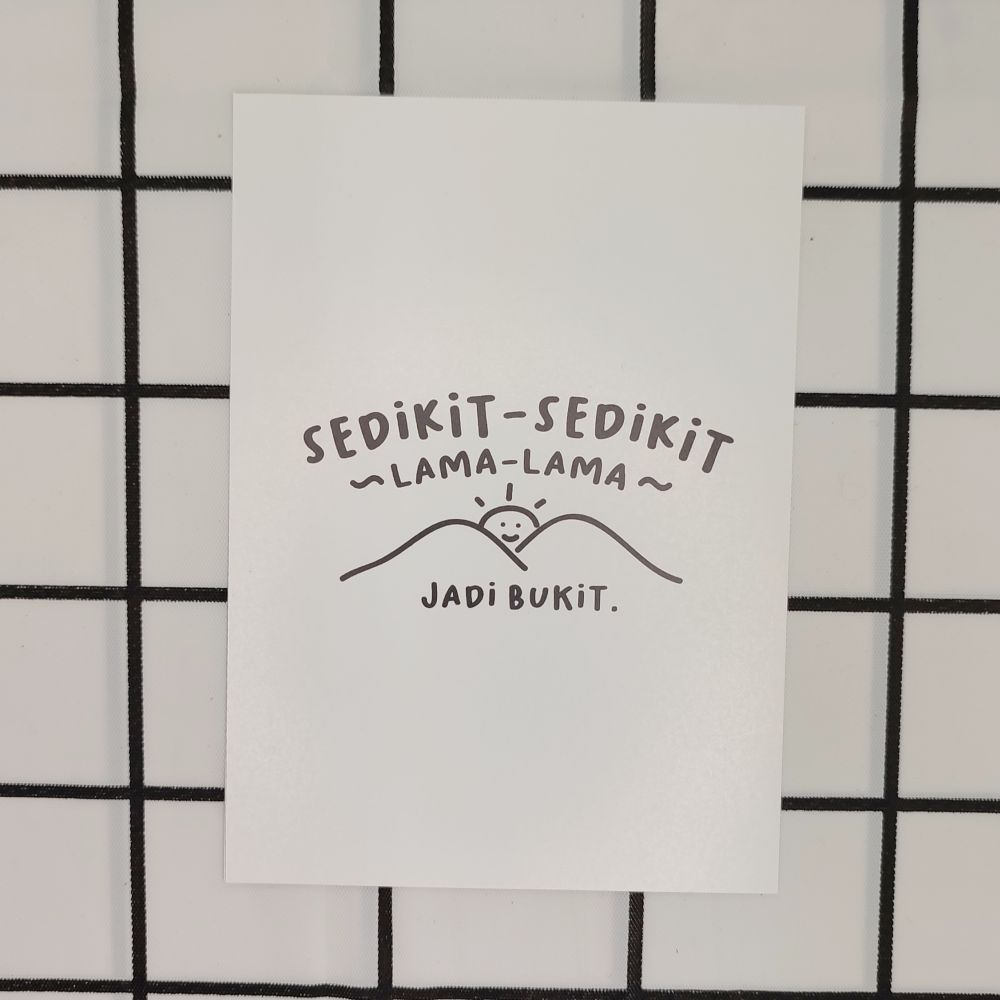 SEDiKiT-SEDiKiT
~LAMA-LAMA~
JADi BUKiT.